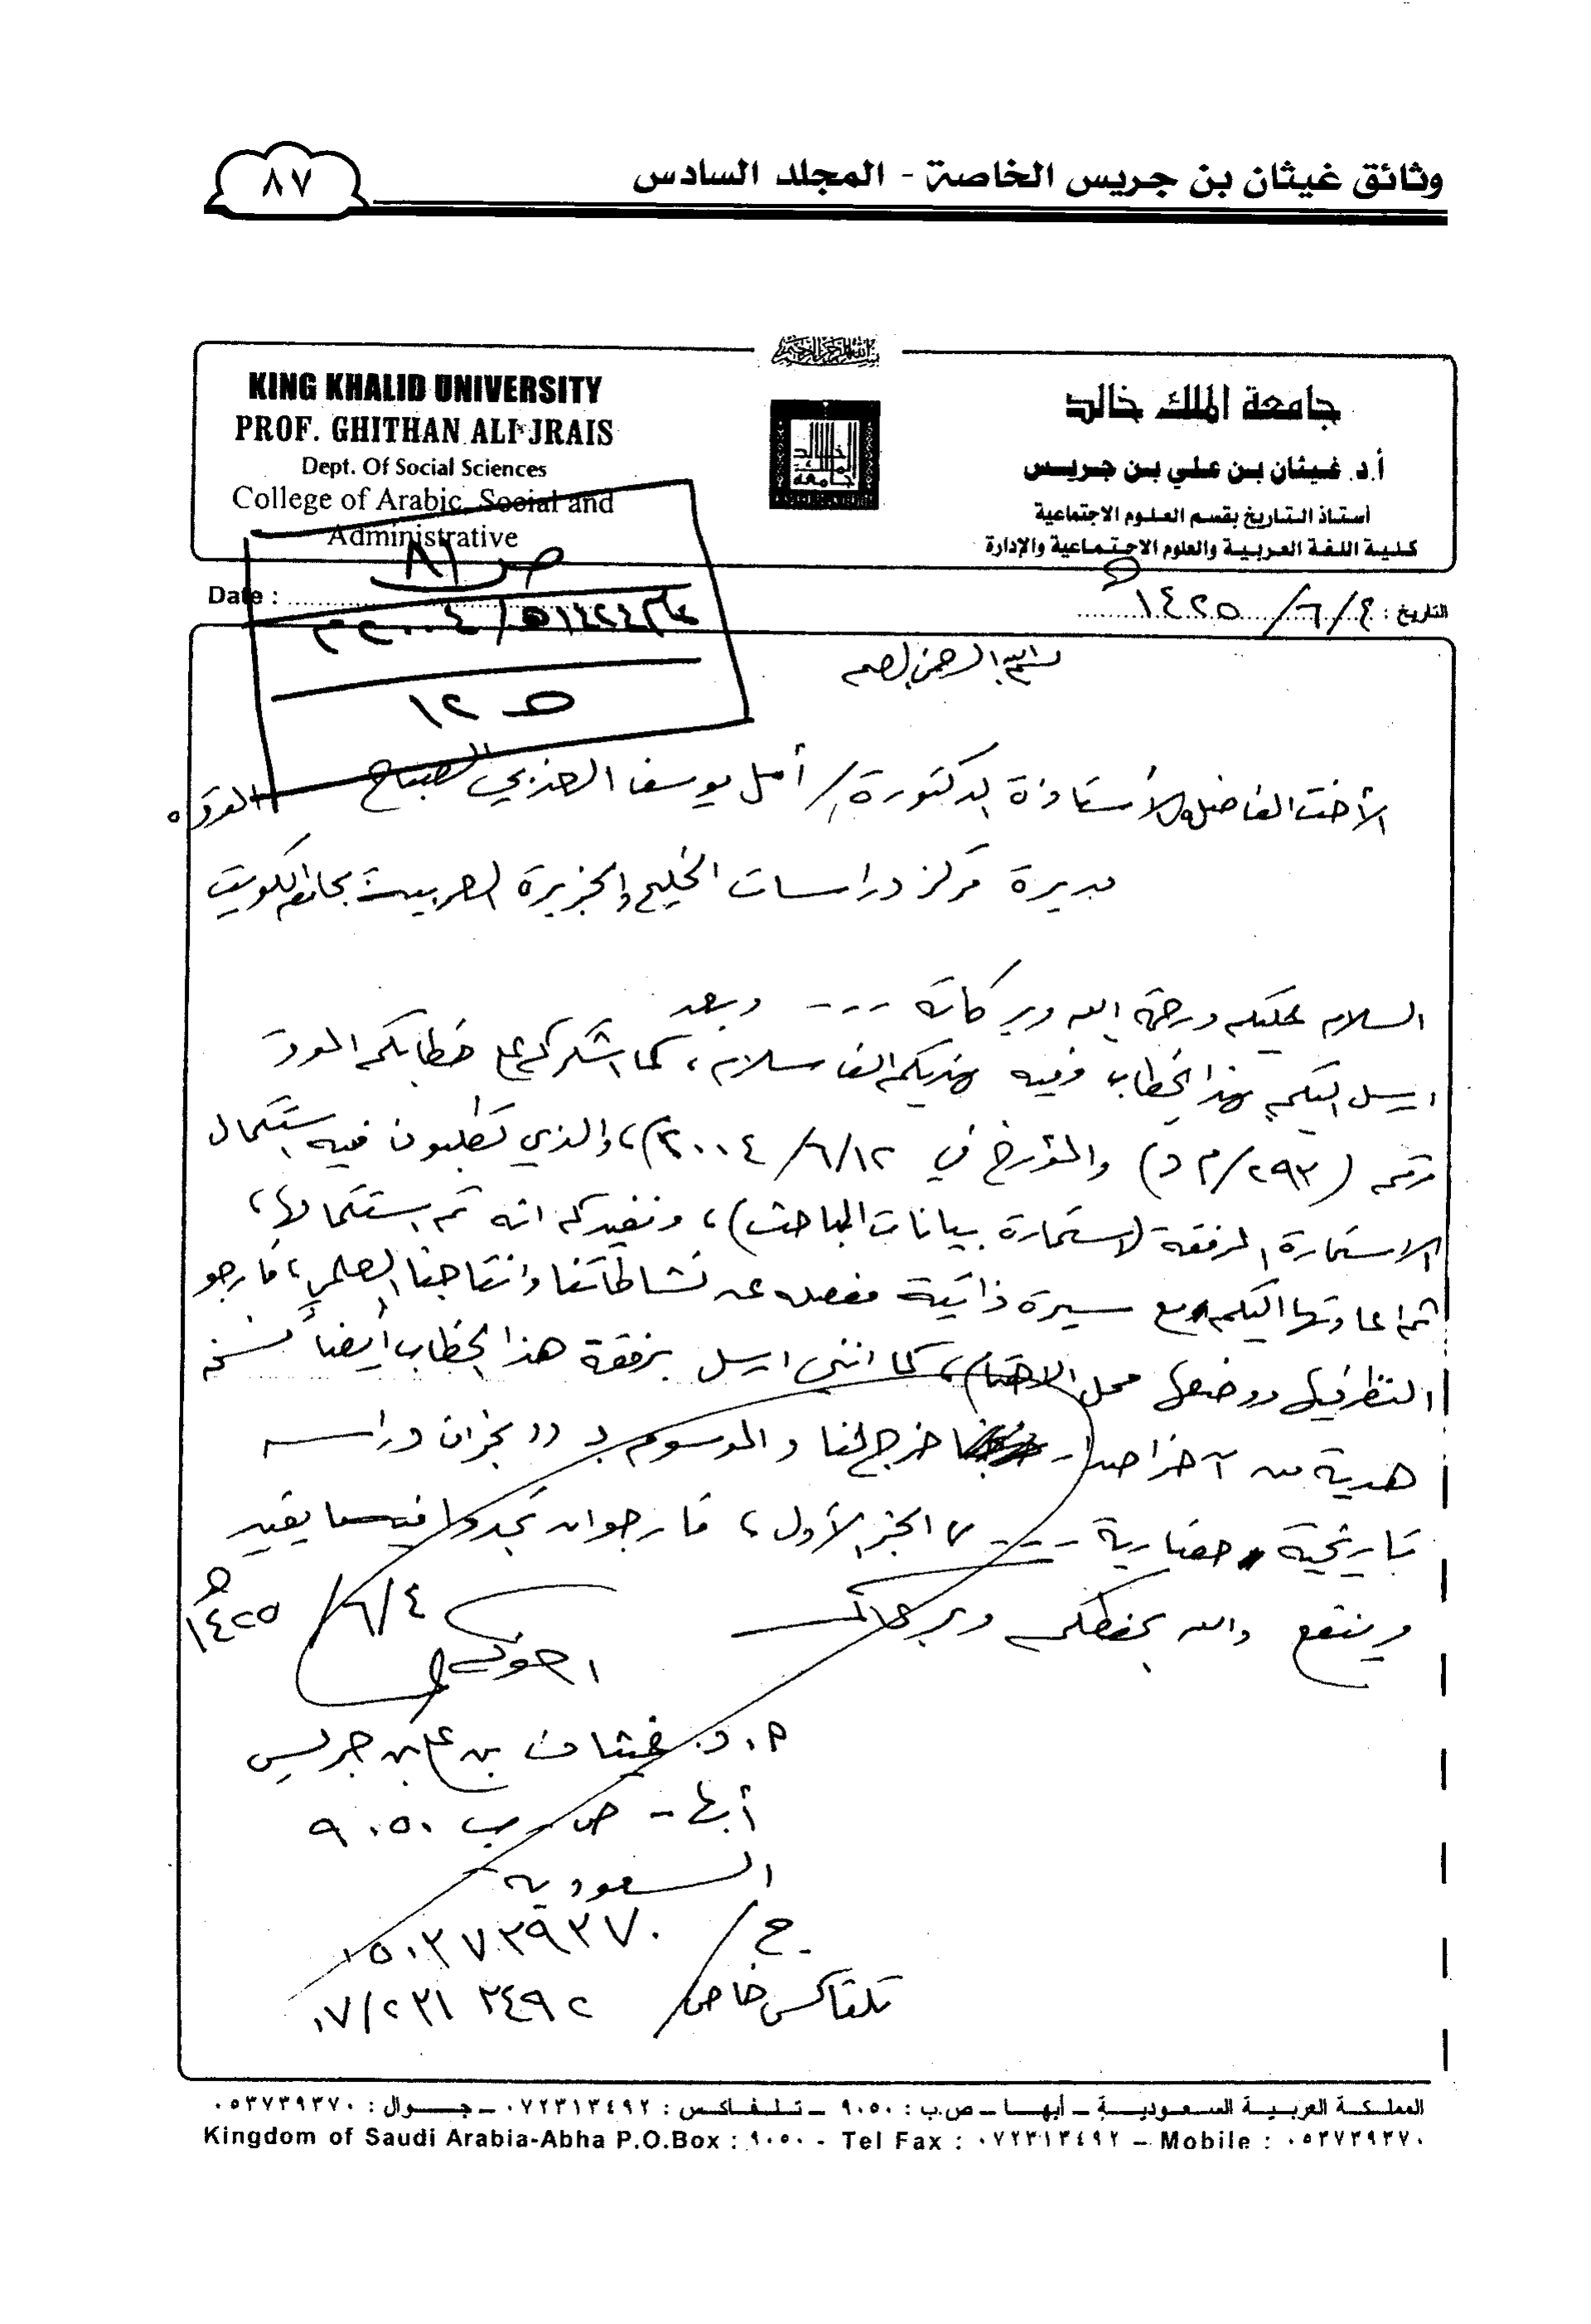 وثائق غيثان بن جريس الخاصة - المجلد السادس
٨٧
KING KHALID UNIVERSITY
PROF. GHITHAN ALI JRAIS
Dept. Of Social Sciences
College of Arabic, Social and
Administrative
جامعة الملك خالد
أ.د. غيثان بن علي بن جريس
أستاذ التاريخ بقسم العلوم الاجتماعية
كلية اللغة العربية والعلوم الاجتماعية والإدارة
جامعة الملك خالد
Date :
التاريخ : ٤/٦/١٤٢٥هـ
ص ٨١
١٤٢٤هـ/٢٠٠٤م
ص ١٢
بسم الله الرحمن الرحيم
الأخت الفاضلة الأستاذة الدكتورة/ أمل يوسف العذبي الصباح الموقرة
مديرة مركز دراسات الخليج والجزيرة العربية بجامعة الكويت
السلام عليكم ورحمة الله وبركاته --- وبعد
ارسل اليكم هذا الخطاب وفيه نهديكم الف سلام، كما اشكركم على خطابكم المودة
رقم (٢٩٣/م د) والمؤرخ في ١٢/٦/٢٠٠٤م)، والذي تطلبون فيه استكمال
الاستمارة المرفقة (استمارة بيانات الباحث)، ونفيدكم انه تم استكمالها،
ثم اعادتها اليكم مع سيرة ذاتية مفصله عن نشاطاتنا وانتاجنا العلمي، فارجو
النظر فيها ووضعها محل الاهتمام، كما انني ارسل برفقة هذا الخطاب أيضاً نسخه
هدية من آخر اصدار خرج لنا والموسوم بـ (( نجران دراسه
تاريخية حضارية --- )) الجزء الأول، فارجو ان تجدوا فيه ما يفيد
وينفع والله يحفظكم ويرعاكم
٤/٦/١٤٢٥هـ
اخوكم
أ.د. غيثان بن علي بن جريس
أبها - ص ب ٩٠٥٠
السعودية
ج/ ٠٥٠٣٧٣٩٣٧٠
تلفاكس خاص/ ٠٧/٢٣١٣٤٩٢
المملكة العربية السعودية - أبها - ص.ب : ٩٠٥٠ - تلفاكس : ٠٧٢٣١٣٤٩٢ - جوال : ٠٥٣٧٣٩٣٧٠
Kingdom of Saudi Arabia-Abha P.O.Box : ٩٠٥٠ - Tel Fax : ٠٧٢٣١٣٤٩٢ - Mobile : ٠٥٣٧٣٩٣٧٠